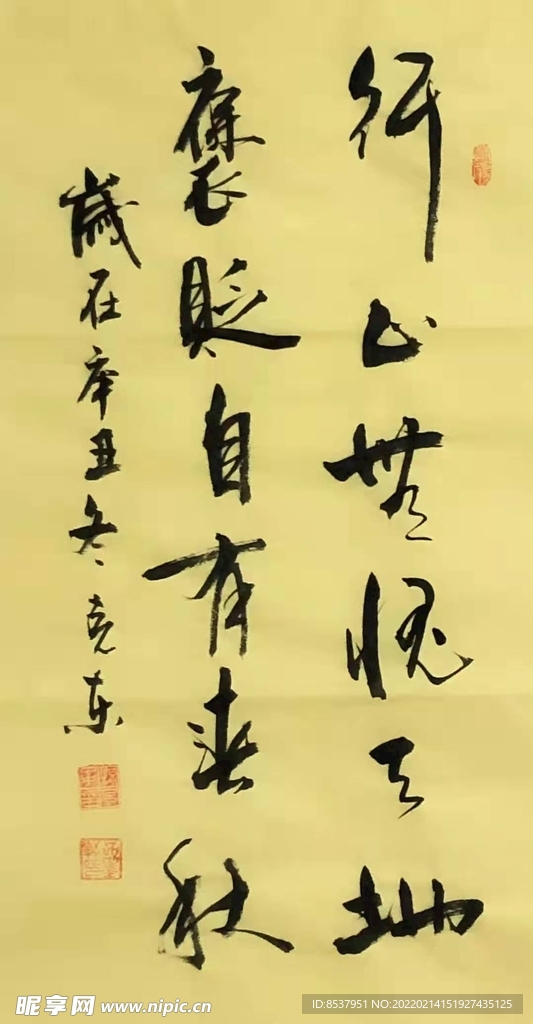 行止無愧天地
褒貶自有春秋
歲在辛丑冬克东
昵享网 www.nipic.cn
ID:8537951 NO:20220214151927435125